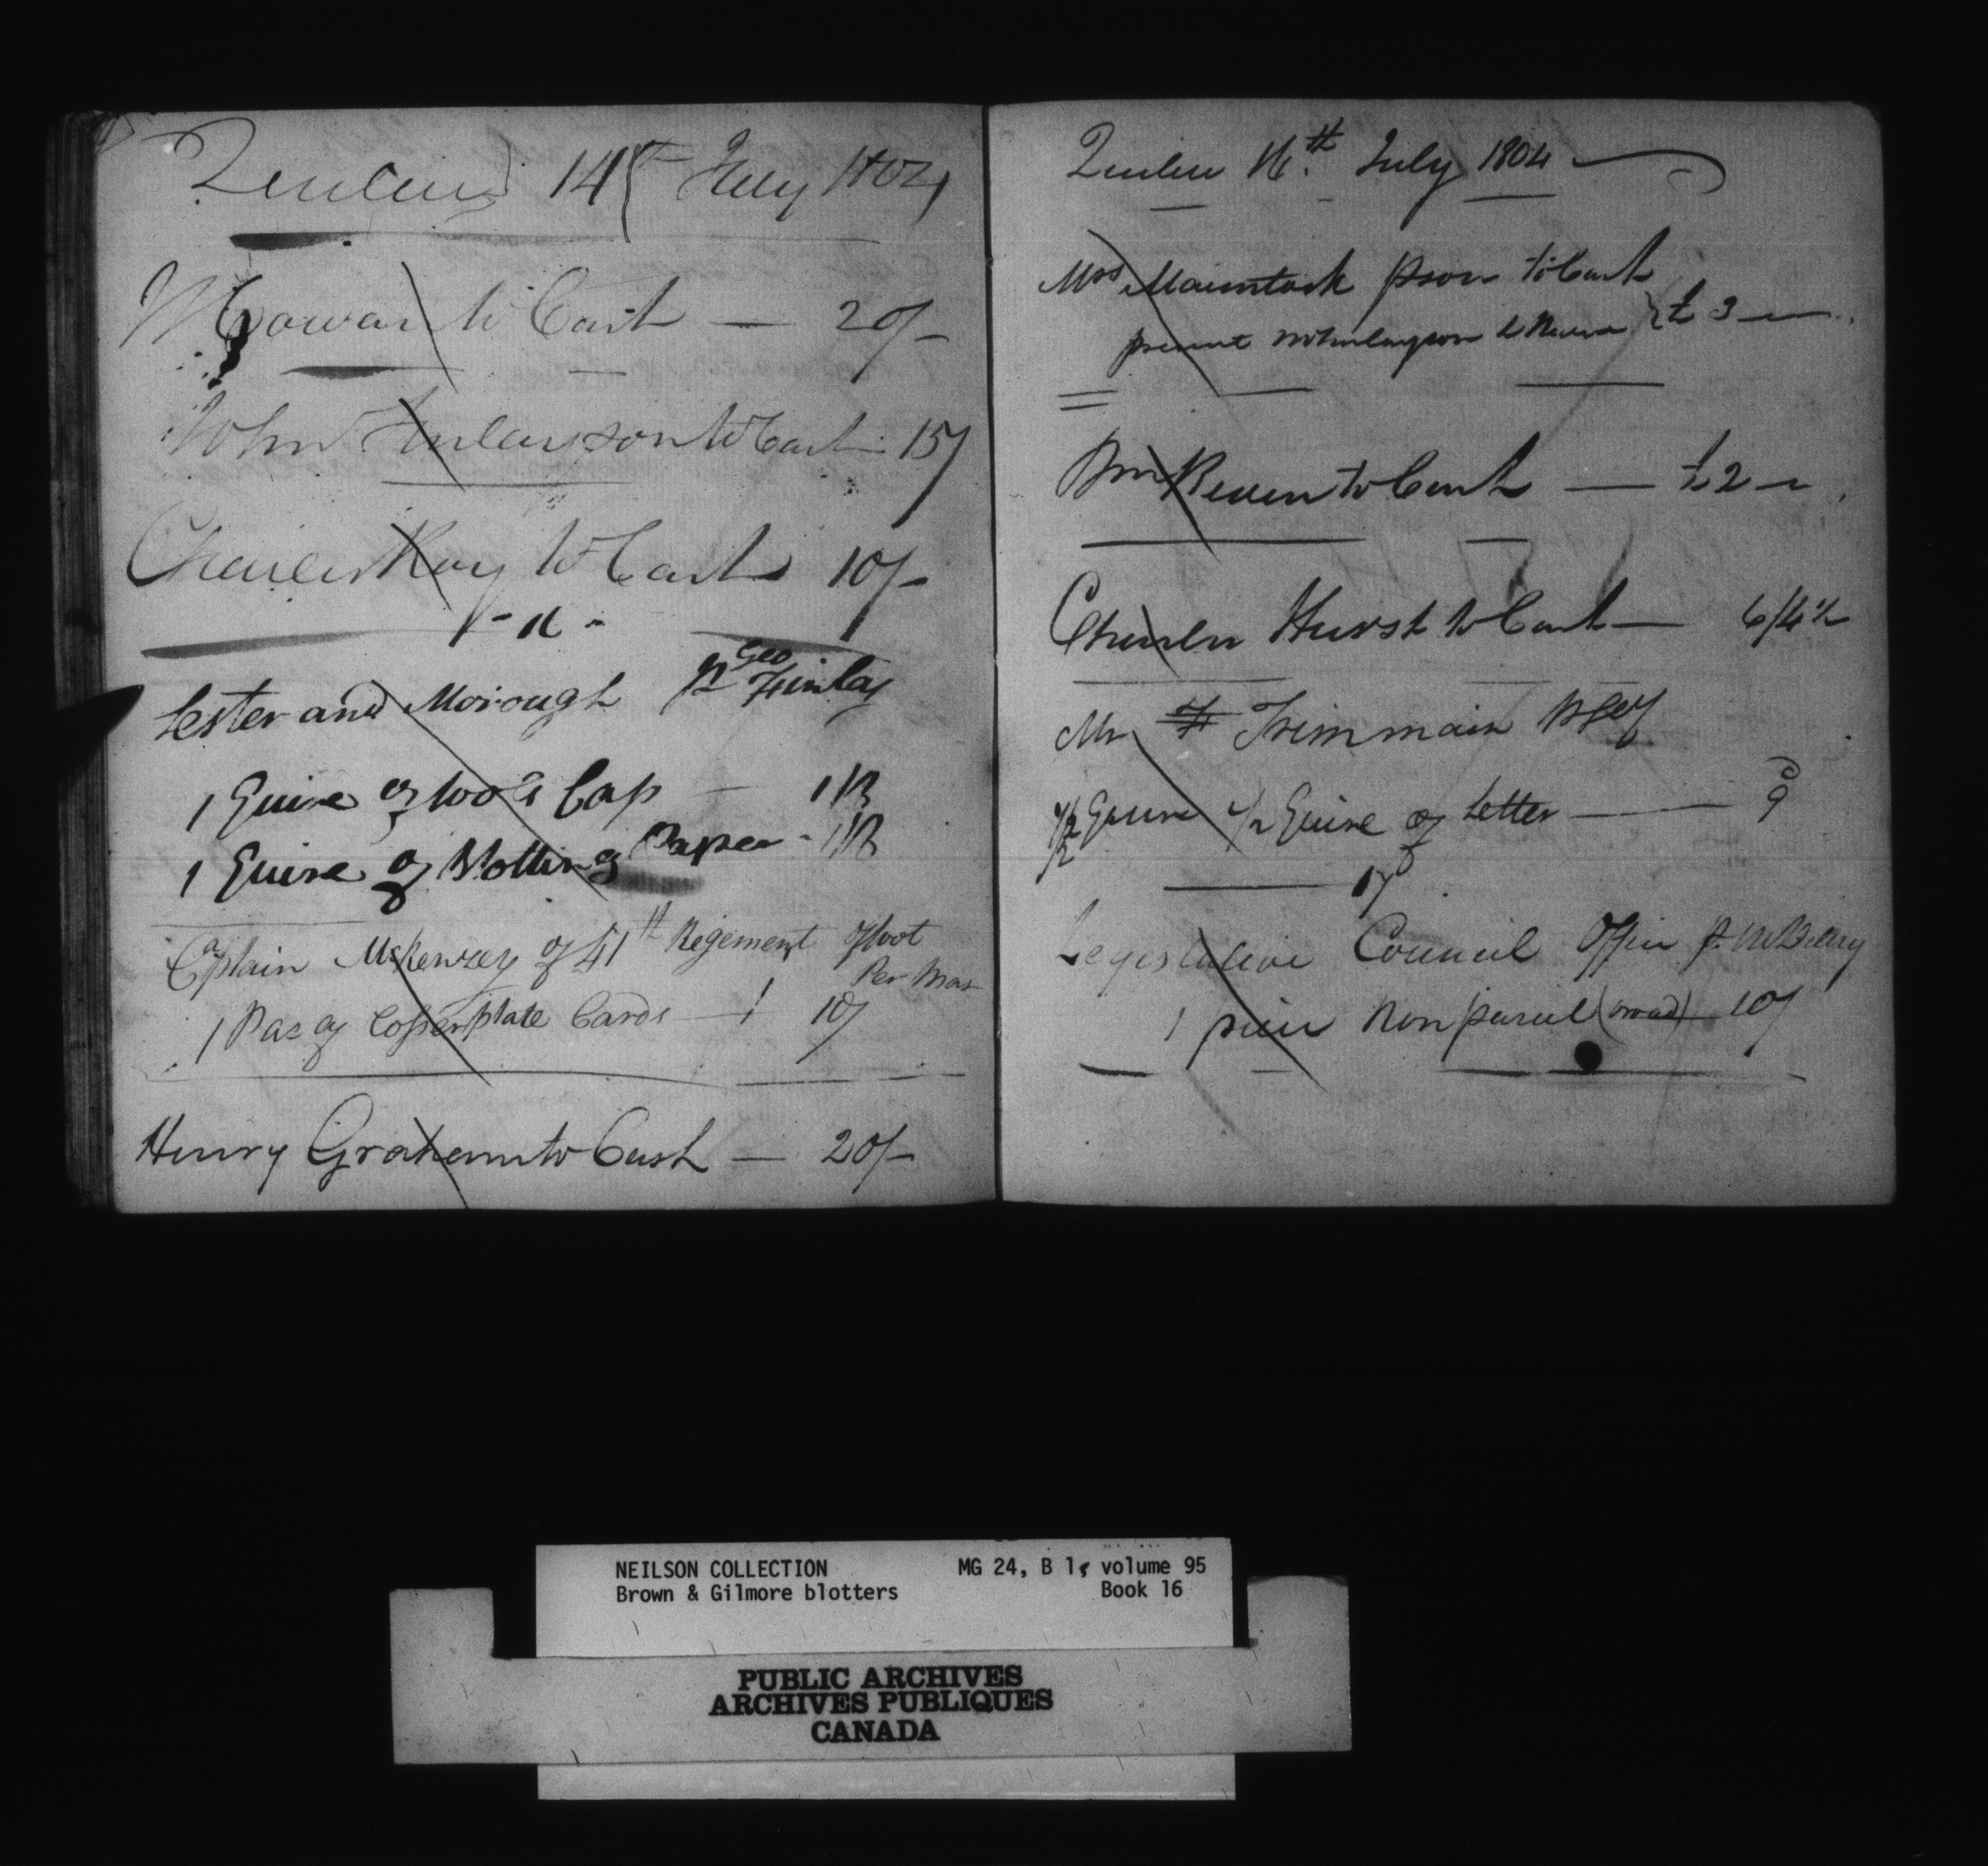 Quebec 14th July 1804
McCowan to Cash — 20/-
John Finlayson to Cash - 15/
Charles Roy to Cash 10/-
- 16 -
Lester and Morough pr Geo Finlay
1 Quire of foo's Cap — 1/3
1 Quire of Blotting Paper - 1/3
Captain McKenzey of 41th Regement of foot
Per Man
1 Pac of Copperplate Cards — 10/
Henry Graham to Cash — 20/-
Quebec 16th July 1804
Mrs to Cash
present £ 3 —
to Cash — £ 2 —
Charles Hurst to Cash — 6/4½
Mr Trimmain
1/2 Quire of Letter — 9d
17
Legislative Council Office
1 Nonpareil (broad) 10/
NEILSON COLLECTION MG 24, B 1, volume 95
Brown & Gilmore blotters Book 16
PUBLIC ARCHIVES
ARCHIVES PUBLIQUES
CANADA